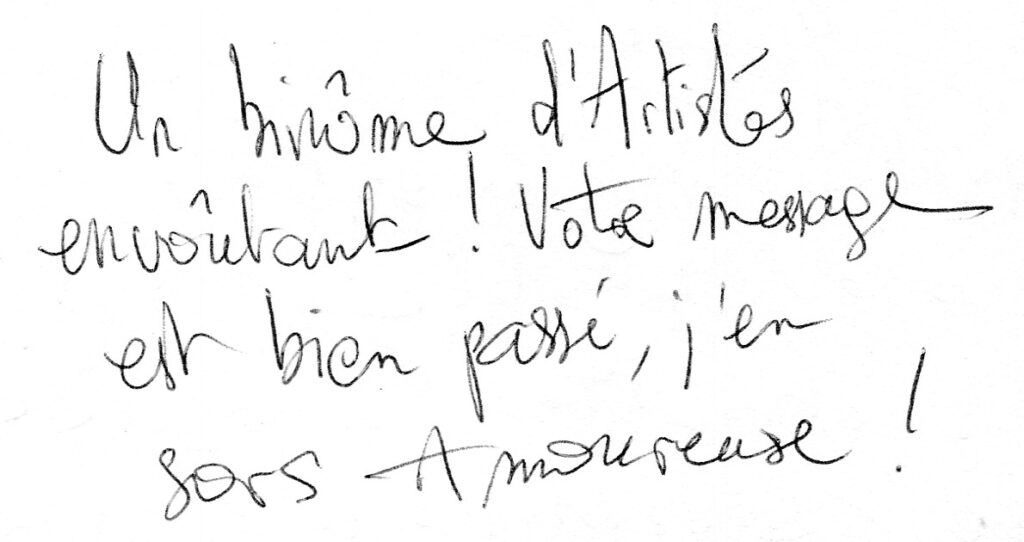 Un binôme d'Artistes
envoûtant ! Votre message
est bien passé, j'en
sors Amoureuse !